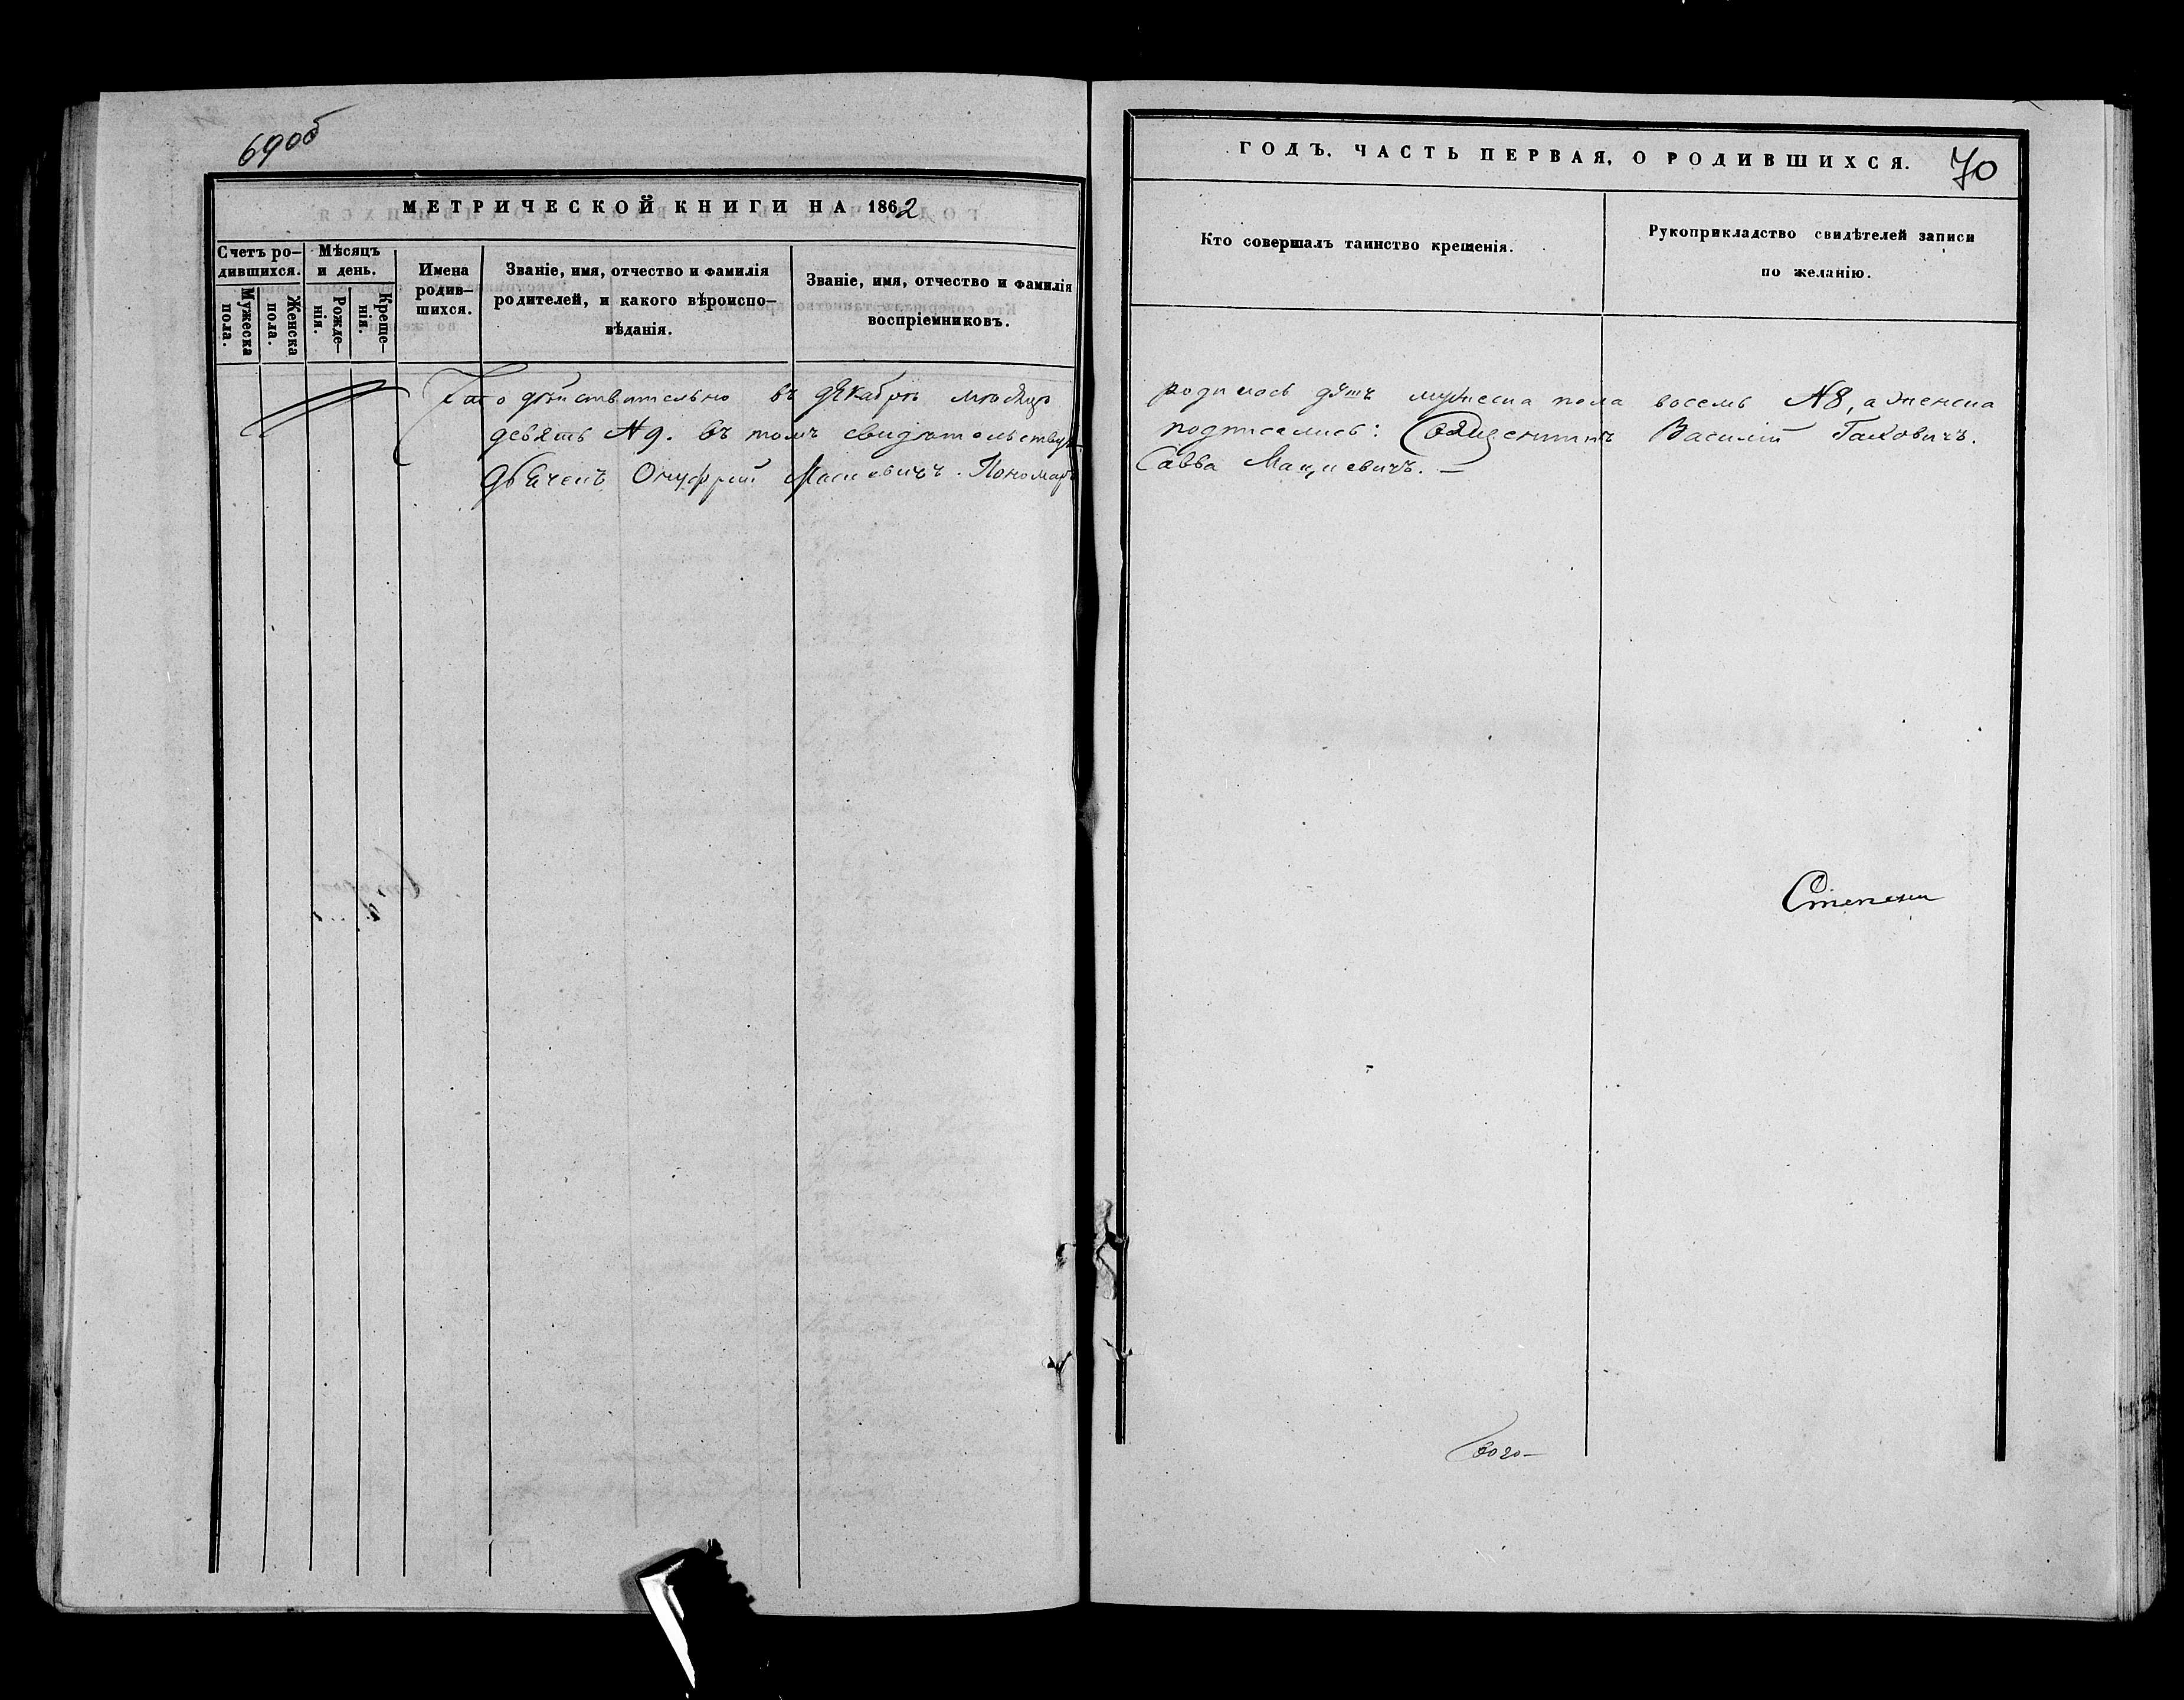 69об
МЕТРИЧЕСКОЙ КНИГИ НА 1862
Счетъ ро-
дившихся.
Мужеска
пола.
Женска
пола.
Мѣсяцъ
и день.
Рожде-
нія.
Креще-
нія.
Имена
родив-
шихся.
Званіе, имя, отчество и фамилія
родителей, и какого вѣроиспо-
вѣданія.
Званіе, имя, отчество и фамилія
воспріемниковъ.
Что дѣйствительно въ декабрѣ мѣсяцѣ
девять №9. въ томъ свидѣтельствуя
Дьяченъ Онуфрій Мациевичъ. Пономарь
ГОДЪ. ЧАСТЬ ПЕРВАЯ, О РОДИВШИХСЯ.
70
Кто совершалъ таинство крещенія.
Рукоприкладство свидѣтелей записи
по желанію.
родилось дѣтъ мужеска пола восемь №8, а женска
подписались: Священникъ Василій Гаховичъ.
Савва Мациевичъ. —